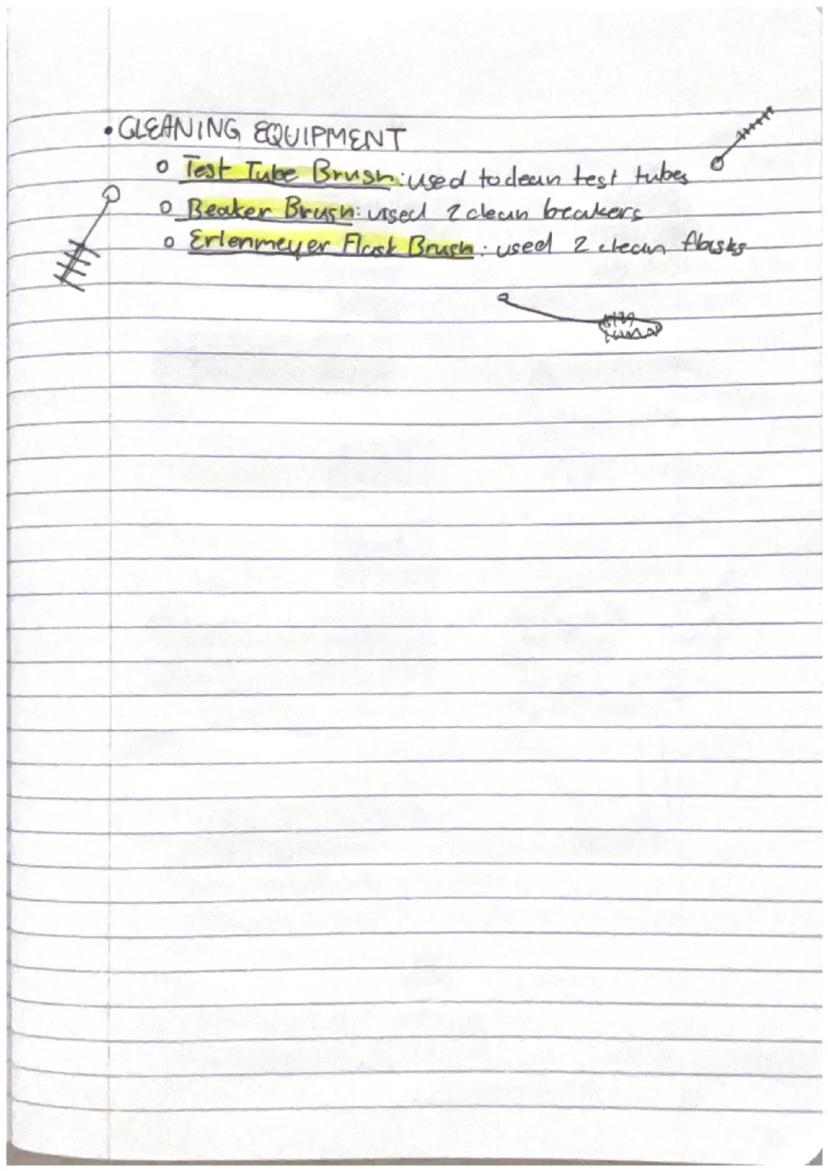 • CLEANING EQUIPMENT
o Test Tube Brush: used to clean test tubes
o Beaker Brush: used 2 clean beakers
o Erlenmeyer Flask Brush: used 2 clean flasks